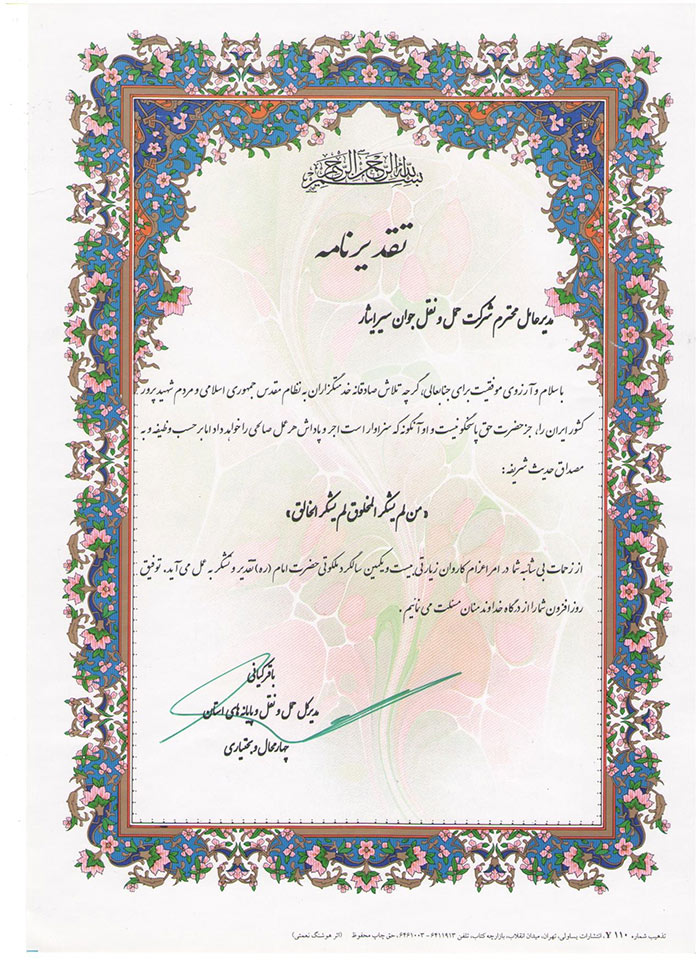 بسم الله الرحمن الرحیم
تقدیرنامه
مدیرعامل محترم شرکت حمل و نقل جوان سیر ایثار
باسلام و آرزوی موفقیت برای جنابعالی، گرچه تلاش صادقانه خدمتگزاران به نظام مقدس جمهوری اسلامی و مردم شهید پرور
کشور ایران را، جز حضرت حق پاسخگو نیست و او آنگونه که سزاوار است اجر و پاداش هر عمل صالحی را خواهد داد اما بر حسب وظیفه و به
مصداق حدیث شریفه :
«من لم یشکر المخلوق لم یشکر الخالق»
از زحمات بی شائبه شما در امر اعزام کاروان زیارتی بیست و یکمین سالگرد ملکوتی حضرت امام (ره) تقدیر و تشکر به عمل می آید، توفیق
روز افزون شما را از درگاه خداوند منان مسئلت می نمائیم .
باقر کیانی
مدیرکل حمل و نقل و پایانه های استان
چهارمحال و بختیاری
تذهیب شماره ۱۱۰ ۷، انتشارات یساولی، تهران، میدان انقلاب، بازارچه کتاب، تلفن ۶۴۱۱۹۱۳ - ۶۴۶۱۰۰۳، حق چاپ محفوظ (اثر هوشنگ نعمتی)